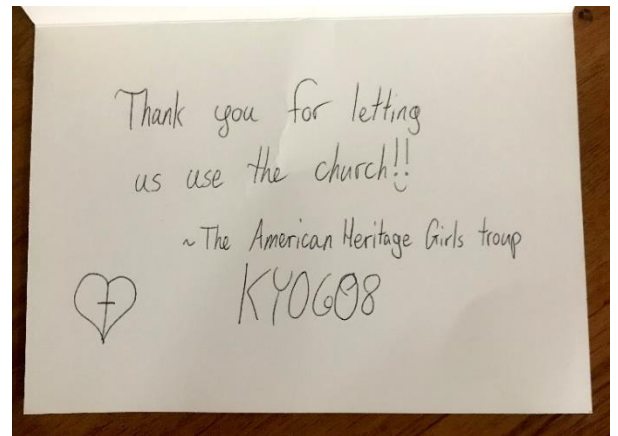 Thank you for letting
us use the church!!
~The American Heritage Girls troup
KY0608